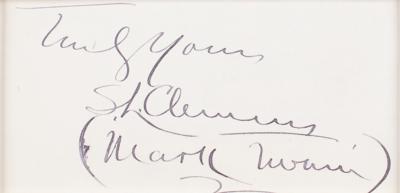 Truly Yours
S. L. Clemens
(Mark Twain)